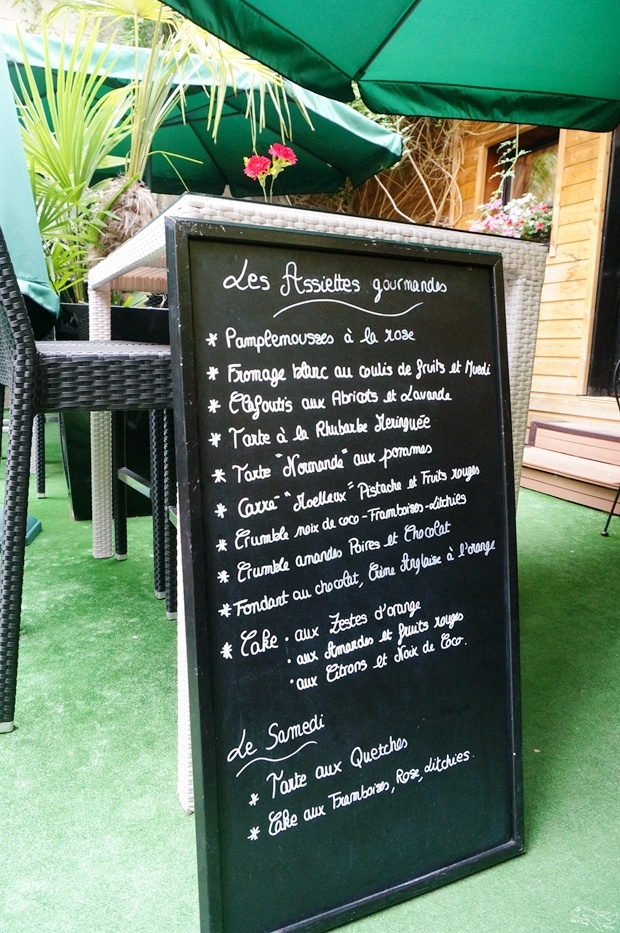 Les Assiettes gourmandes
* Pamplemousses à la rose
* Fromage blanc au coulis de fruits et Muesli
* Clafoutis aux Abricots et Lavande
* Tarte à la Rhubarbe Meringuée
* Tarte "Normande" aux pommes
* Carré "Moelleux" Pistache et Fruits rouges
* Crumble noix de coco-Framboises-Litchies
* Crumble amandes Poires et Chocolat
* Fondant au chocolat, Crème Anglaise à l'orange
* Cake • aux Zestes d'orange
• aux Amandes et fruits rouges
• aux Citrons et Noix de Coco.
Le Samedi
* Tarte aux Quetches
* Cake aux Framboises, Rose, Litchies.